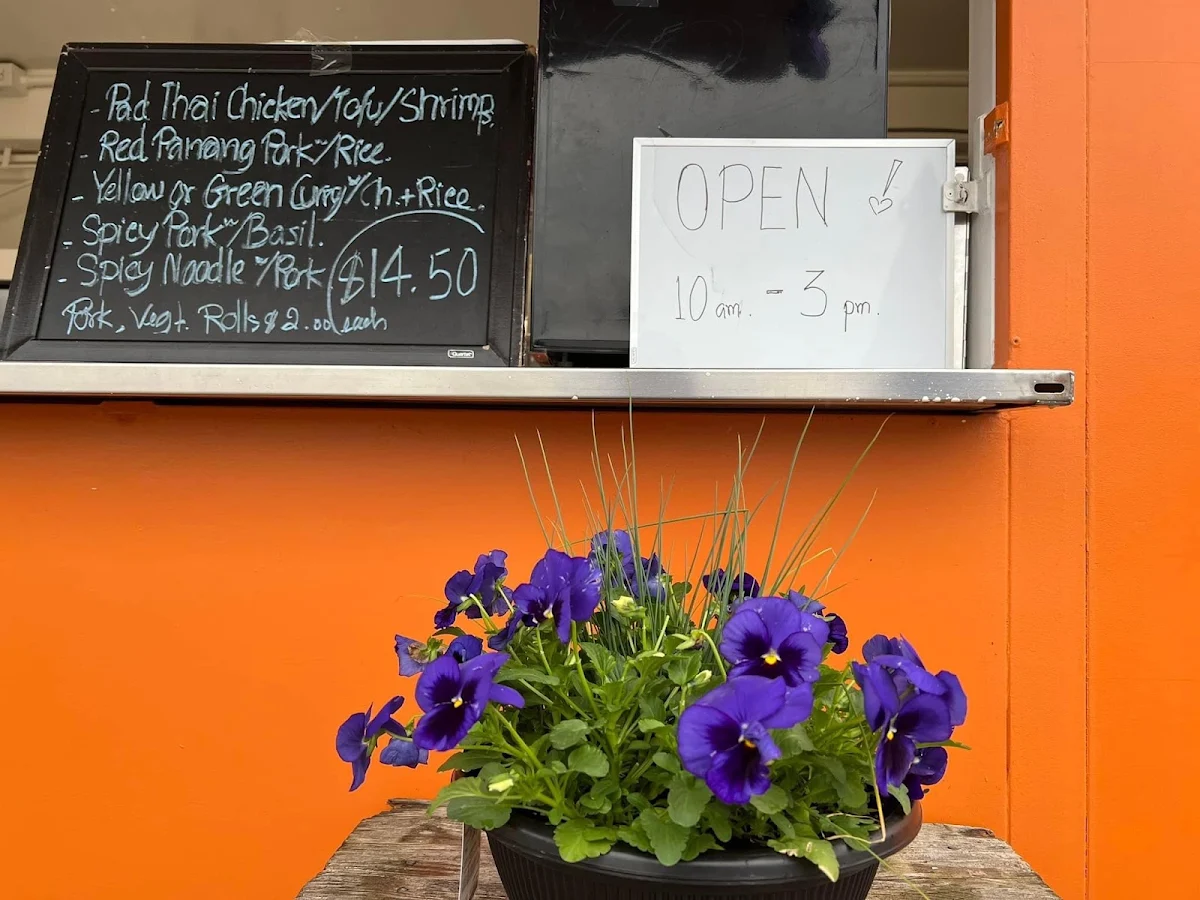 - Pad Thai Chicken/Tofu/Shrimp
- Red Panang Pork w/Rice.
- Yellow or Green Curry w/Ch.+Rice.
- Spicy Pork w/Basil.
- Spicy Noodle w/Pork
$14.50
Pork, Vegt. Rolls $2.00 each
Quartet
OPEN !
10 am. - 3 pm.